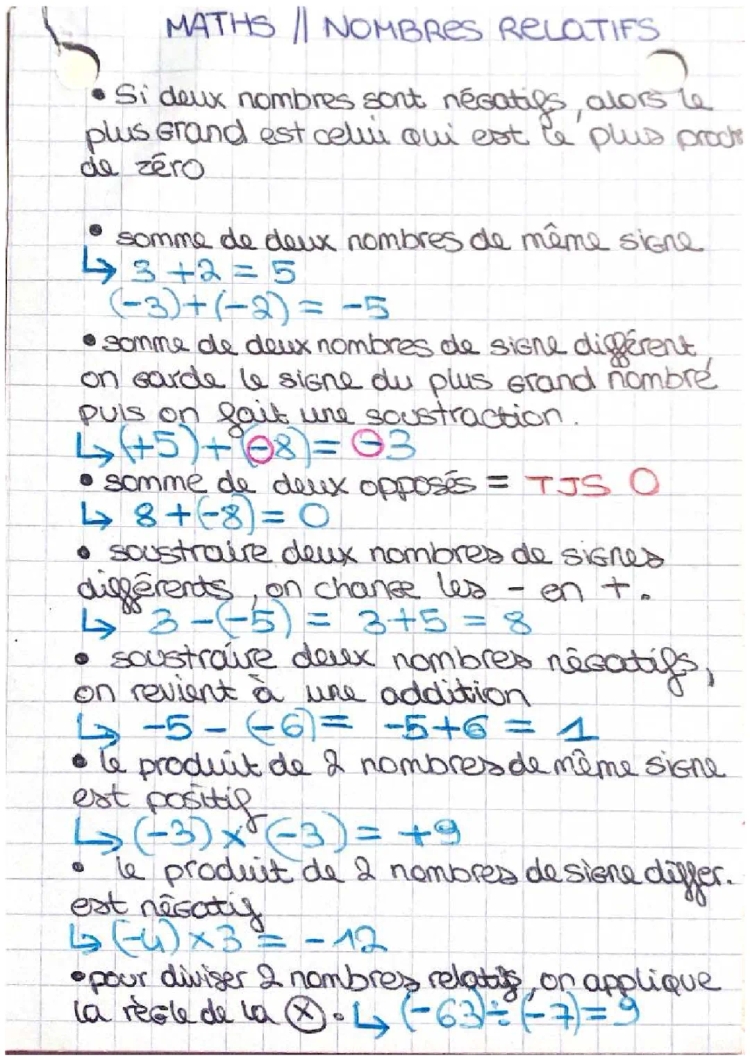 MATHS // NOMBRES RELATIFS
• Si deux nombres sont négatifs, alors le
plus grand est celui qui est le plus proche
de zéro
• somme de deux nombres de même signe
↳ 3 + 2 = 5
(-3)+(-2) = -5
• somme de deux nombres de signe différent,
on garde le signe du plus grand nombre
puis on fait une soustraction.
↳ (+5) + (-8) = -3
• somme de deux opposés = TJS 0
↳ 8 + (-8) = 0
• soustraire deux nombres de signes
différents, on change les - en +.
↳ 3 - (-5) = 3+5 = 8
• soustraire deux nombres négatifs,
on revient à une addition
↳ -5 - (-6) = -5+6 = 1
• le produit de 2 nombres de même signe
est positif
↳ (-3) × (-3) = +9
• le produit de 2 nombres de signe différ.
est négatif
↳ (-4) × 3 = -12
• pour diviser 2 nombres relatifs, on applique
la règle de la ⊗. ↳ (-63) ÷ (-7) = 9